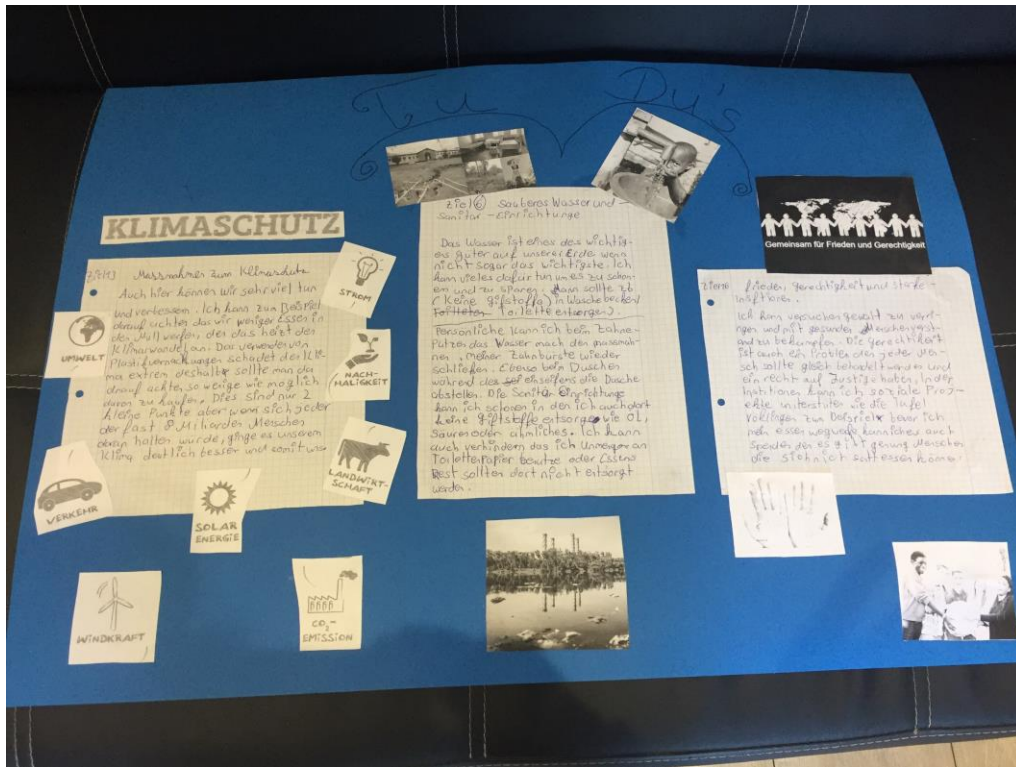 Tu Du's
KLIMASCHUTZ
Ziel 13 Massnahmen zum Klimaschutz
Auch hier können wir sehr viel tun
und verbessern. Ich kann zum Beispiel
darauf achten das wir weniger Essen in
den Müll werfen, den das heizt den
Klimawandel an. Das verwenden von
Plastikverpackungen schadet des Kli-
ma extrem deshalb sollte man da
drauf achten, so wenige wie möglich
davon zu kaufen. Dies sind nur 2
kleine Punkte aber wenn sich jeder
der fast 8 Miliarden Menschen
daran halten würde, ginge es unserem
Klima deutlich besser und somit uns.
STROM
UMWELT
NACH-
HALTIGKEIT
LANDWIRT-
SCHAFT
VERKEHR
SOLAR
ENERGIE
WINDKRAFT
CO2-
EMISSION
Ziel 6 Sauberes Wasser und
Sanitär-Einrichtunge
Das Wasser ist eines des wichtig-
ens guter auf unserer Erde wenn
nicht sogar das wichtigste. Ich
kann vieles dafür tun um es zu schon-
en und zu sparen. Mann sollte zb
(Keine giftstoffe) in Waschebecken/
Toilette entsorgen).
Persönliche kann ich beim Zähne-
Putzen das Wasser nach den
meiner Zahnbürste wieder
schließen. Ebenso beim Duschen
während des einseifens die Dusche
abstellen. Die Sanitär Einrichtunge
kann ich schonen in den ich auch dort
keine giftstoffe entsorge wie ÖL,
Säuren oder ähnliches. Ich kann
auch verhindern das ich Unmengen an
Toilettenpapier benutze oder Essens
Rest sollten dort nicht entsorgt
werden.
Gemeinsam für Frieden und Gerechtigkeit
frieden, gerechtigkeit und starke
Ich kann versuchen gewalt zu verri-
ngen und mit gesunden Menschenverst-
and zu bekämpfen. Die gerechtigkeit
ist auch ein Problem den jeder Men-
sch sollte gleich behandelt werden und
ein recht auf Justiz haben. In den
Institionen kann ich soziale Proj-
ekte unterstützen wie die Tafel
zum Beispiel bevor ich
mein essen wegwerfe kann ich es auch
Spenden den es gibt genung Menschen
die sich nich satt essen können.